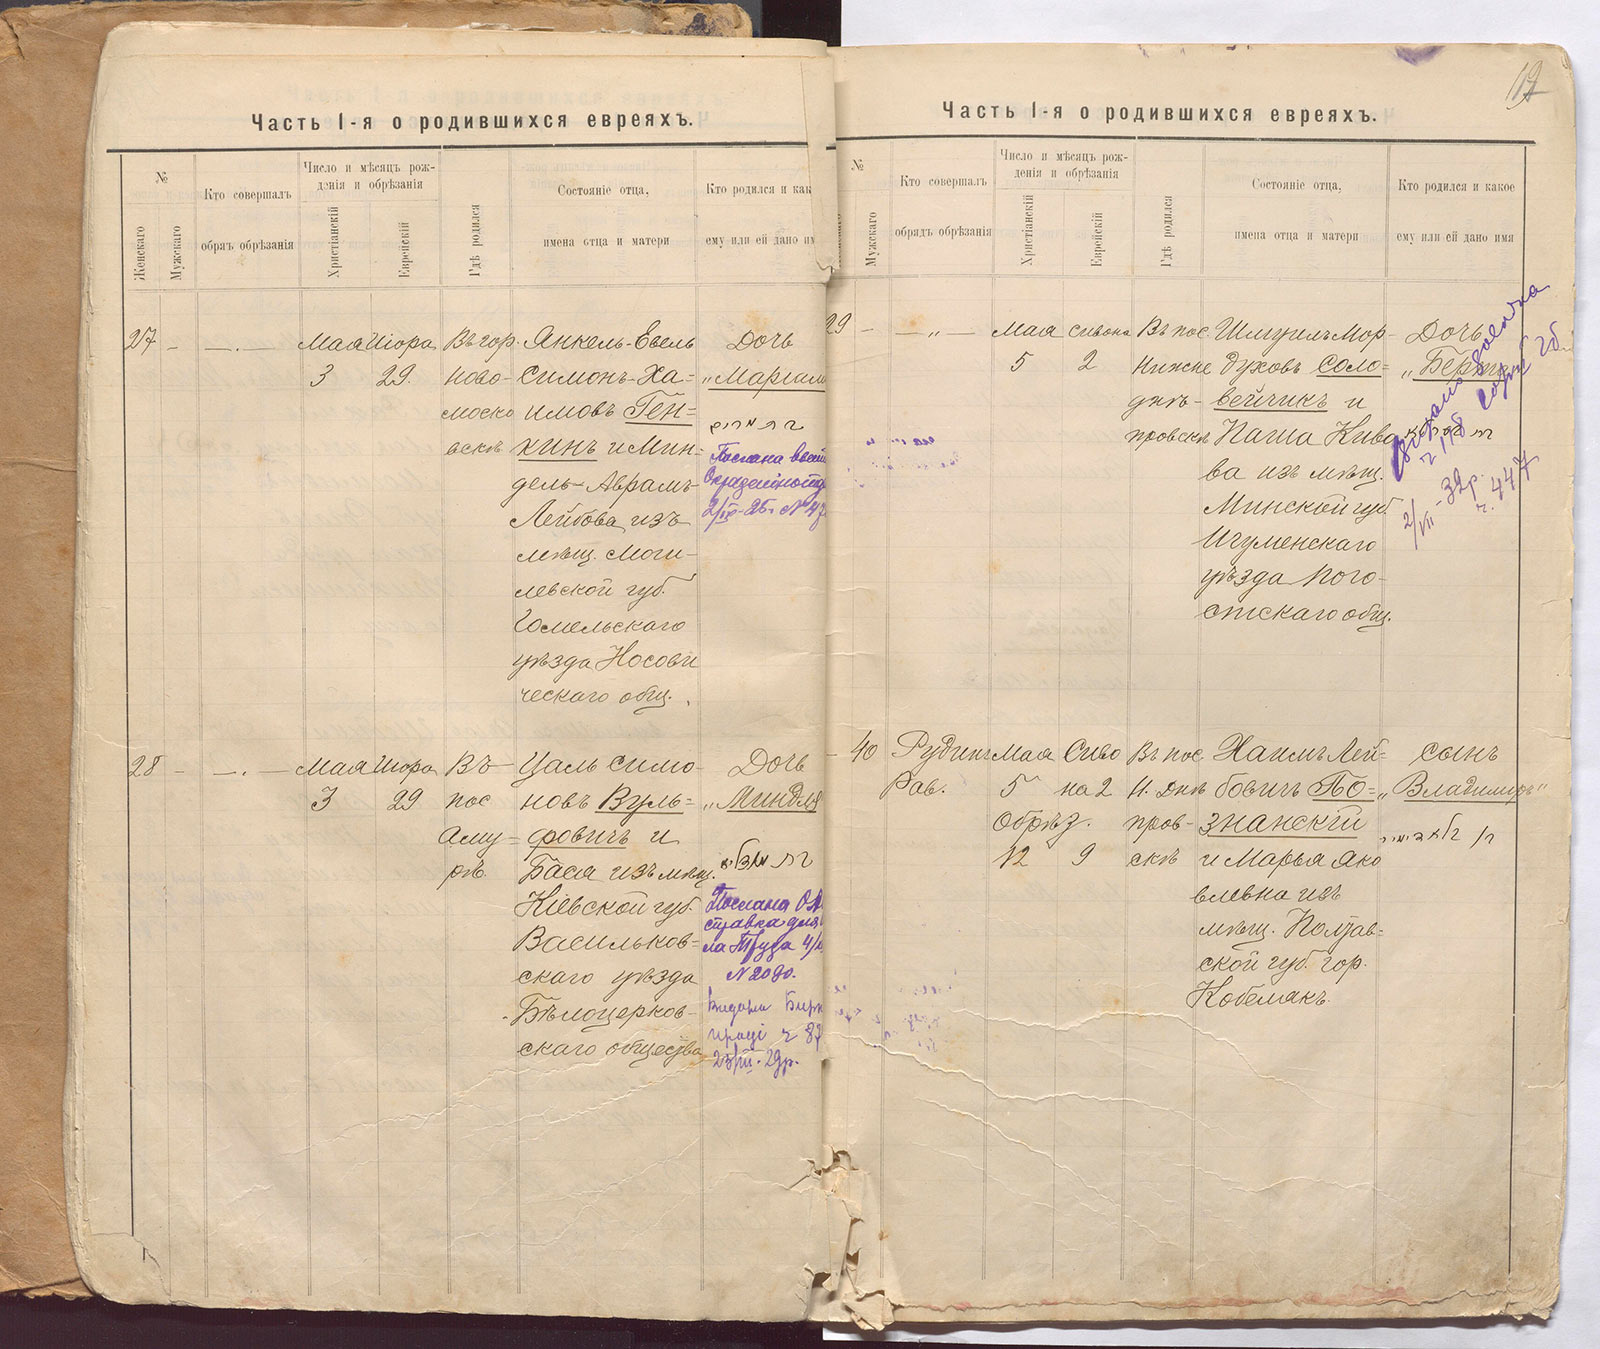 Часть I-я о родившихся евреяхъ.
№
Женскаго
Мужскаго
Кто совершалъ
обрядъ обрѣзанія
Число и мѣсяцъ рож-
денія и обрѣзанія
Христіанскій
Еврейскій
Гдѣ родился
Состояніе отца,
имена отца и матери
Кто родился и как
ему или ей дано им
27 - —.—
Мая
3
Іюра
29.
Въ гор.
Ново-
моско
вскѣ
Янкель-Евель
Симонъ-Ха=
имовъ Ген=
кинъ и Мин=
дель-Аврамъ-
Лейбова изъ
мѣщ. Моги-
левской губ.
Гомельскаго
уѣзда Носови
ческаго общ.
Дочь
„Маріам
מרים
Послана
28 - —.—
Мая
3
Іюра
29
Въ
пос
Аму=
рѣ
Цаль Симо-
новъ Вуль=
фовичъ и
Бася изъ мѣщ.
Кіевской губ.
Васильков=
скаго уѣзда
Бѣлоцерков-
скаго общества
Дочь
„Миндля
Послана
справка для
ла Труда
N 2090.
Видана Бирж
праці ч 87
23/III-29р.
19
Часть I-я о родившихся евреяхъ.
№
Мужскаго
Кто совершалъ
обрядъ обрѣзанія
Число и мѣсяцъ рож-
денія и обрѣзанія
Христіанскій
Еврейскій
Гдѣ родился
Состояніе отца,
имена отца и матери
Кто родился и какое
ему или ей дано имя
29 - —„—
Мая
5
Сивона
2
Въ пос
Нижне
днѣ-
провскѣ
Шмуилъ Мор-
духовъ Соло=
вейчикъ и
Паша Киво
ва изъ мѣщ.
Минской губ
Игуменскаго
уѣзда Пого-
стскаго общ.
Дочь
2/VII-32р.
ч. 447
- 40
Рудинъ
Рав.
Мая
5
Обрѣз.
12
Сиво
на 2
9
Въ пос
Н. Днѣ
пров-
скѣ
Хаимъ Лей-
бовичъ По=
знанскій
и Марья Яко
влевна изъ
мѣщ. Полтав=
ской губ. гор.
Кобелякъ.
сынъ
„Владиміръ"